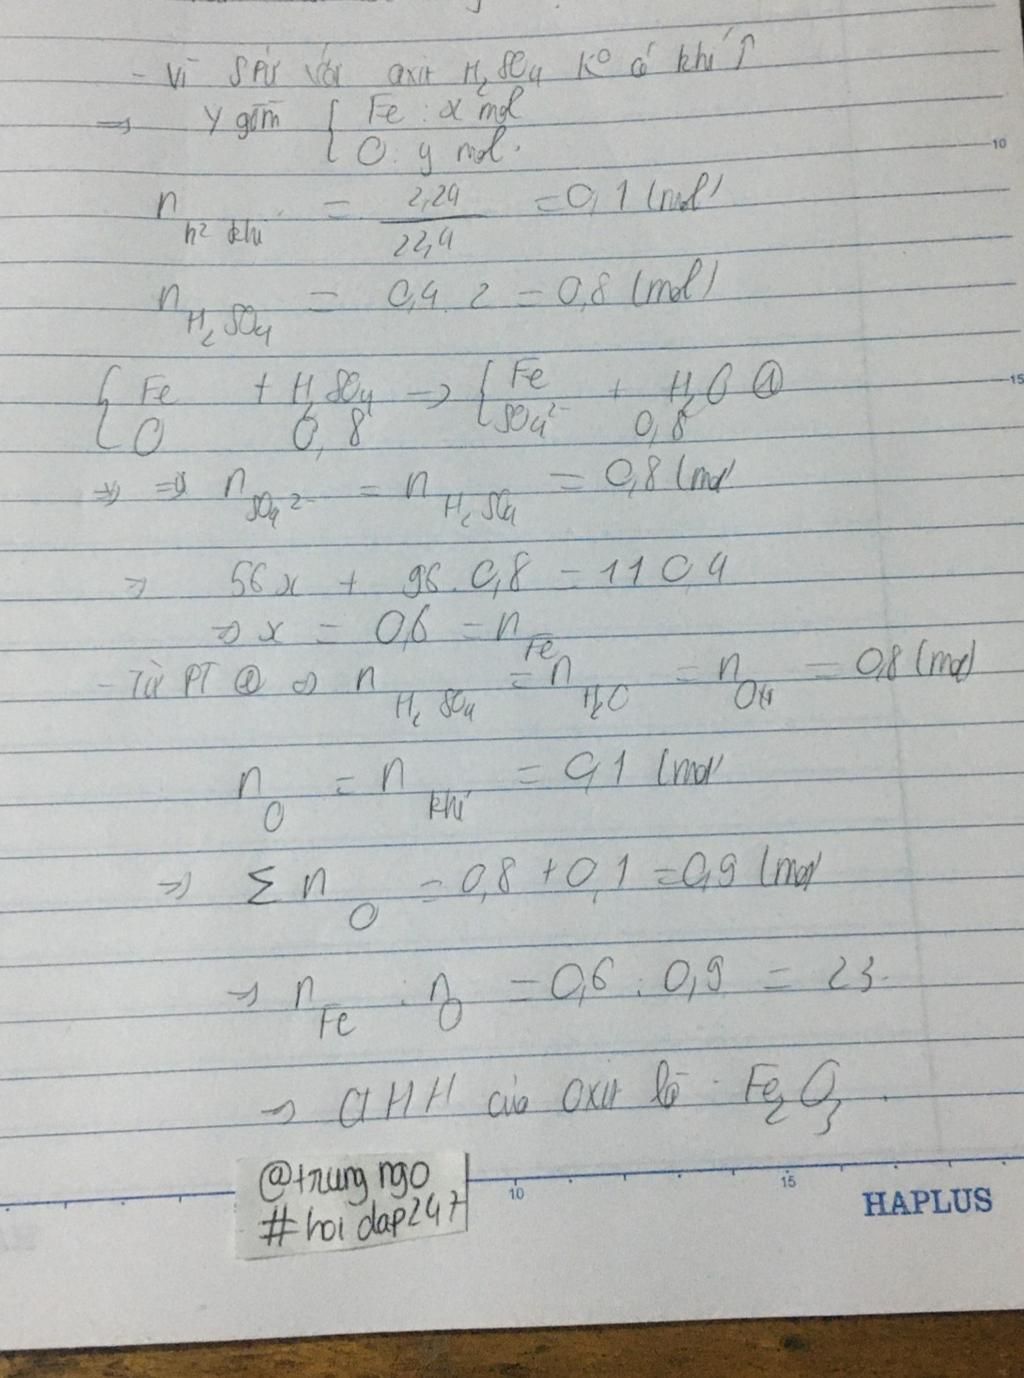 - Vì SPƯ với axit H₂SO₄ k° có khí ↑
⇒ Y gồm { Fe : x mol
O : y mol.
10
n h² khí = 2,24 / 22,4 = 0,1 (mol)
n H₂SO₄ = 0,4 . 2 = 0,8 (mol)
{ Fe + H₂SO₄ → { Fe + H₂O ①
15
O 0,8 SO₄²⁻ 0,8
⇒ ⇒ n SO₄²⁻ = n H₂SO₄ = 0,8 (mol
⇒ 56x + 96.0,8 = 110,4
⇒ x = 0,6 = n Fe
- Từ PT ① ⇒ n H₂SO₄ = n H₂O = n OH = 0,8 (mol)
n O = n khí = 0,1 (mol
⇒ Σ n O = 0,8 + 0,1 = 0,9 (mol
→ n Fe : n O = 0,6 : 0,9 = 2:3.
→ CTHH của oxit là : Fe₂O₃.
@trung ngo
#hoi dap247
10 15 HAPLUS